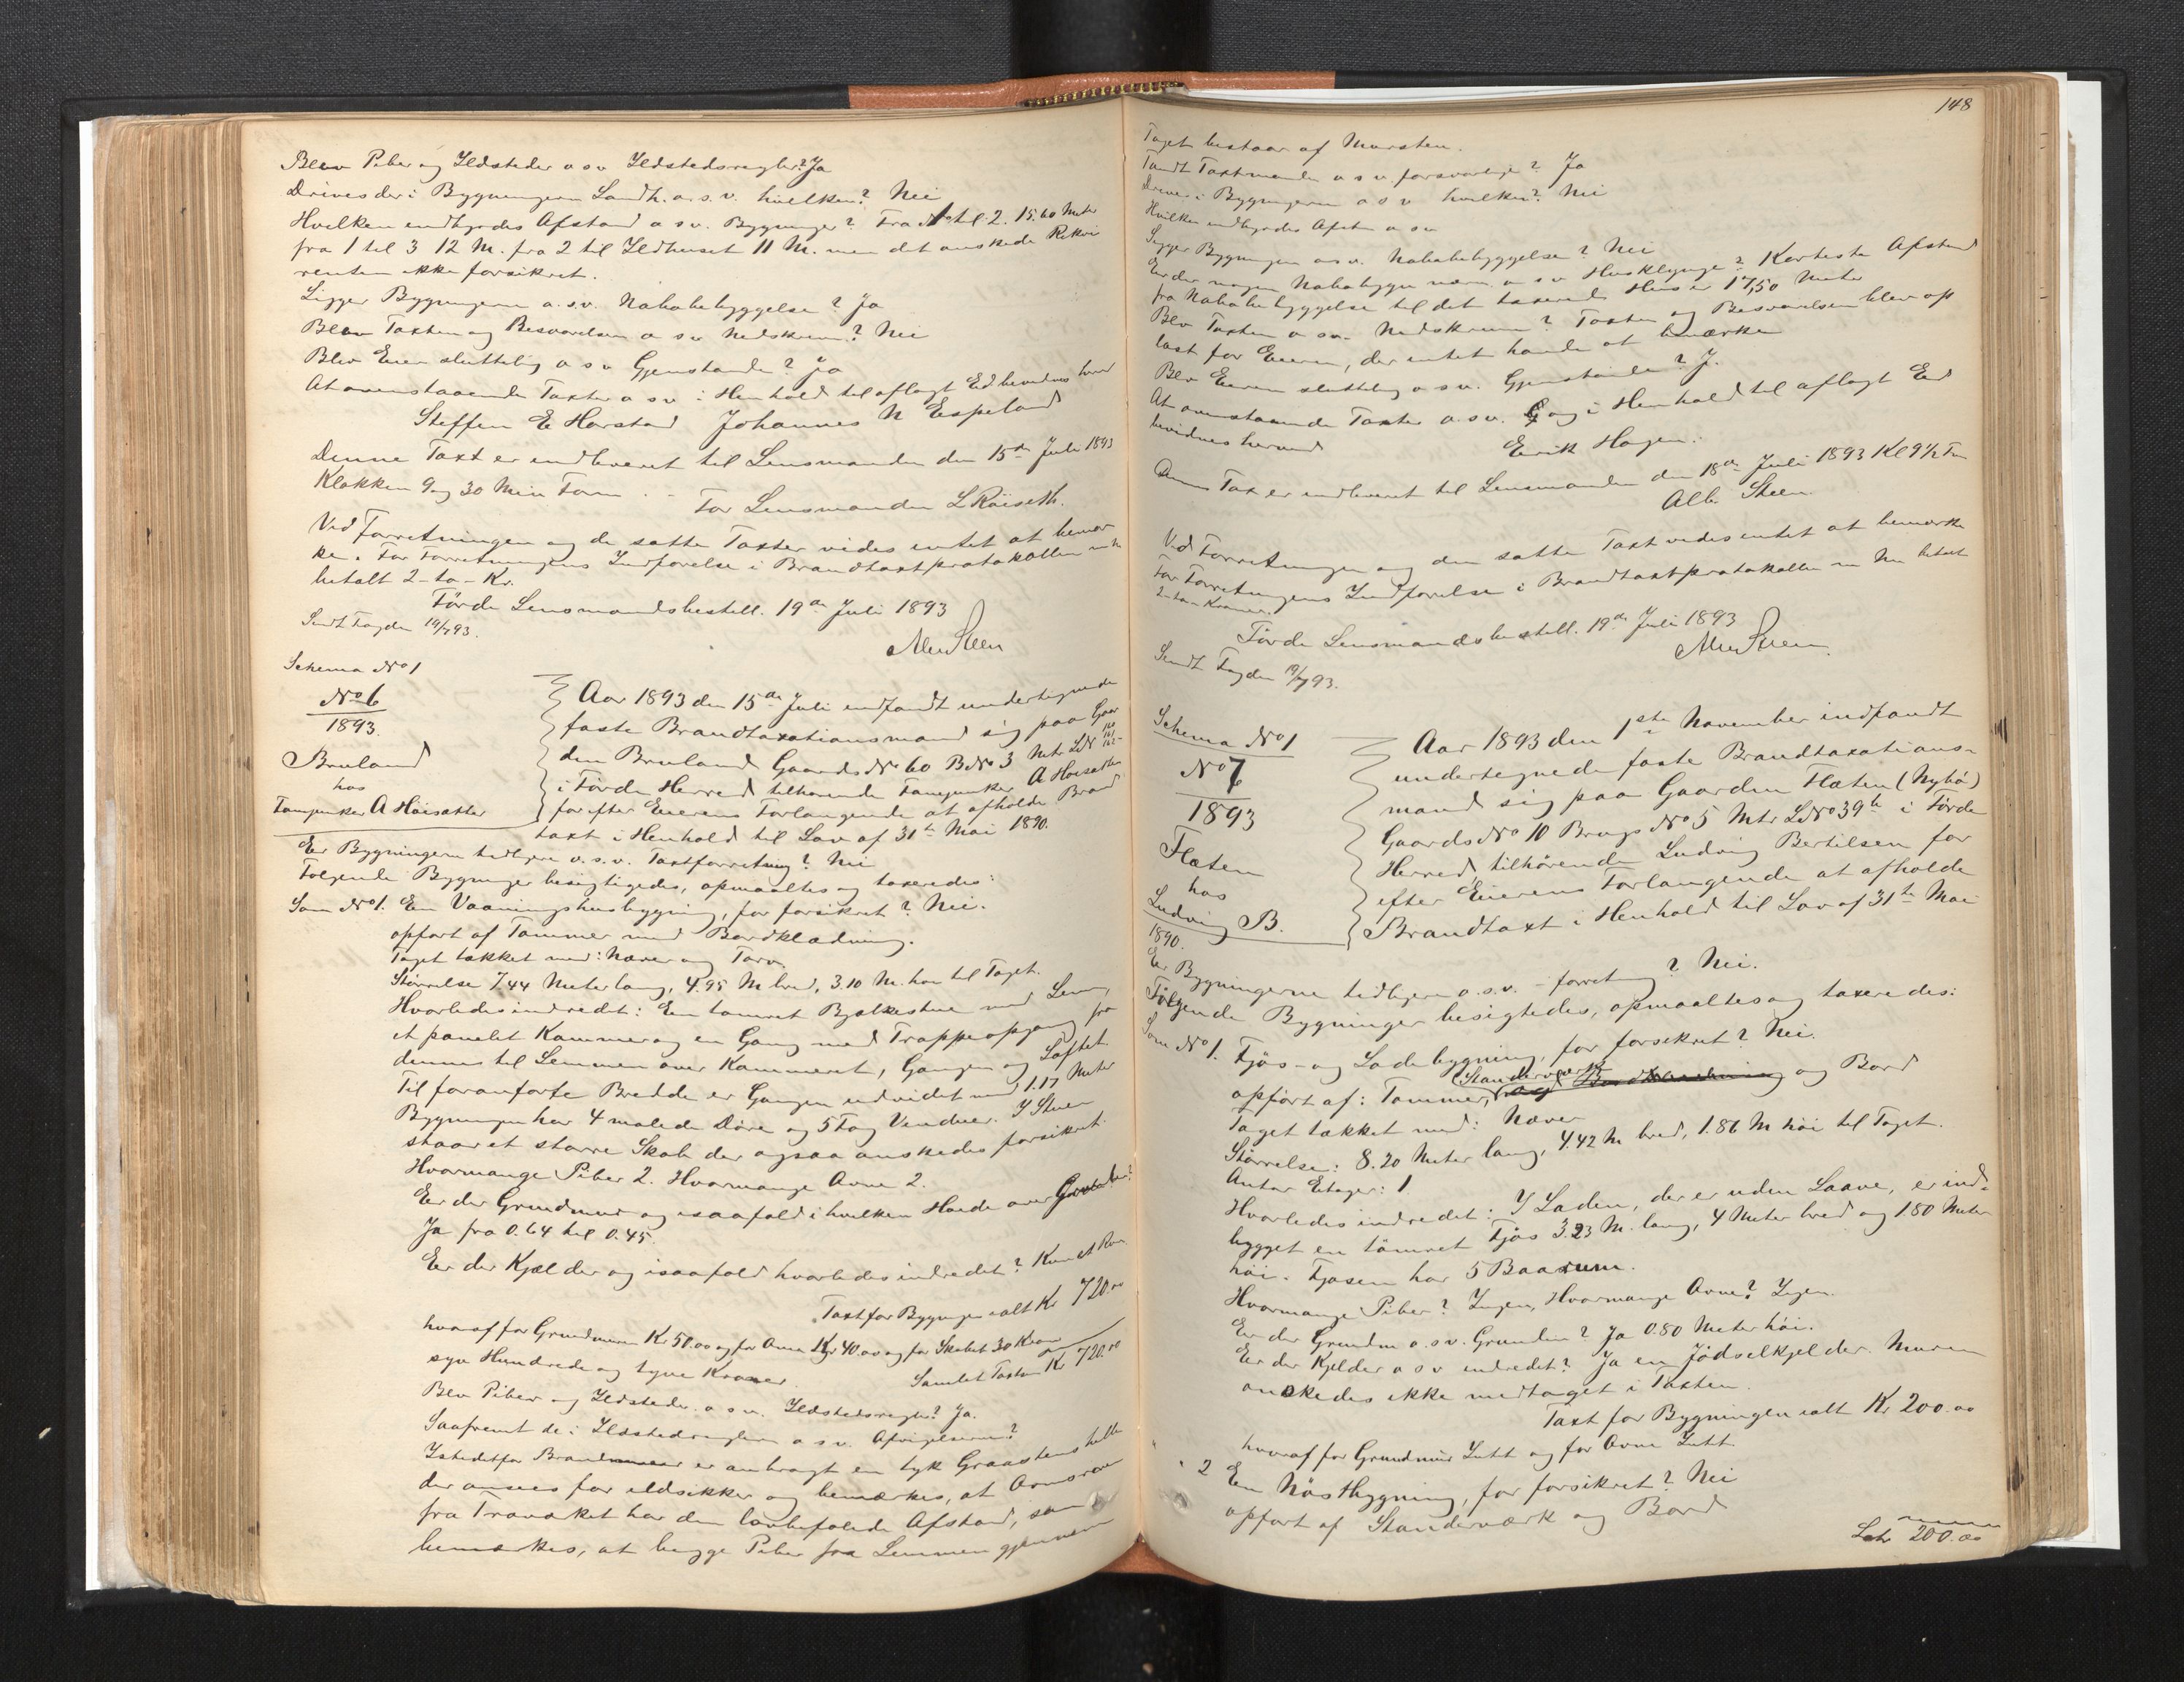 Blev Piber og Ildsteder o s v Ildstedsregler? Ja
Drives der i Bygningerne Landh. o. s. v. hvilken? Nei
Hvilken indbyrdes Afstand o s v. Bygninger? Fra No 1 til 2. 15.60 Meter
fra 1 til 3 12 M. fra 2 til Ildhuset 11 M. men det ønskede Rekvi
renten ikke forsikret.
Ligger Bygningerne o. s. v. Nabobebyggelse? Ja
Blev Taxten og Besvarelsen o s v nedskreven? Nei
Blev Eieren sluttelig o s v Gjenstande? Ja
At ovenstaaende Taxter o s v i Henhold til aflagt Ed bevidnes herved
Steffen E Horstad Johannes N Espeland
Denne Taxt er indleveret til Lensmanden den 15de Juli 1893
Klokken 9 og 30 Min Form. -
For Lensmanden L Røiseth.
Ved Forretningen og de satte Taxter vides intet at bemær
ke. For Forretningens Indførelse i Brandtaxtprotokollen er
betalt 2 - to - Kr.
Førde Lensmandsbestill. 19de Juli 1893
Sendt Fogden 19/7 93.
Alb Steen
Schema No 1
No 6
1893.
Bruland
hos
Fanejunker A Høisæther
Aar 1893 den 15de Juli indfandt undertegnede
faste Brandtaxationsmand sig paa Gaar
den Bruland Gaards No 60 B No 3 Mtr LN 160 161 162
i Førde Herred tilhørende Fanejunker A Høisæther
for efter Eierens Forlangende at afholde Brand
taxt i Henhold til Lov af 31te Mai 1890.
Er Bygningerne tidligere o. s. v. Taxtforretning? Nei
Følgende Bygninger besigtigedes, opmaaltes og taxeredes:
Som No 1. En Vaaningshusbygning, før forsikret? Nei.
opført af Tømmer med Bordklædning.
Taget tækket med: Næver og Torv.
Størrelse 7.44 Meter lang, 4.95 M bred, 3.10 M. høi til Taget.
Hvorledes indredet: En tømret Bjælkestue med Lem,
et panelet Kammer og en Gang med Trappeopgang fra
denne til Lemmen over Kammeret, Gangen og Loftet.
Til foranførte Bredde er Gangen udvidet med 1.17 Meter
Bygningen har 4 malede Døre og 5 Fag Vinduer. I Stuen
staar et større Skab der ogsaa ønskedes forsikret.
Hvormange Piber 2. Hvormange Ovne 2.
Er der Grundmur og isaafald i hvilken Høide over Grunden?
Ja fra 0.64 til 0.45.
Er der Kjælder og isaafald hvorledes indredet? Kun et Rum
Taxt for Bygningen ialt Kr 720.00
hvoraf for Grundmuren Kr 50.00 og for Ovne Kr 40.00 og for Skabet 30 Kroner
syv Hundrede og tyve Kroner
Samlet Taxtsum Kr 720.00
Blev Piber og Ildsteder o s v. Ildstedsregler? Ja.
Saafremt de i Ildstedsreglerne o s v. Afvigelserne?
Istedetfor Brandmuur er anbragt en tyk Graastenshelle
der ansees for ildsikker og bemærkes, at Ovnsrøer
fra Træværket har den lovbefalede Afstand, som
bemærkes, at begge Piber fra Lemmen gjennem
148
Taget bestaar af Mursten.
Fandt Taxtmanden o s v forsvarlige? Ja
Drives i Bygningerne o s v hvilken? Nei
Hvilken indbyrdes Afstn o s v
Ligger Bygningen o s v. Nabobebyggelse? Nei
Er der nogen Nabobygn nærm. o s v Husklynge? Korteste Afstand
fra Nabobebyggelse til det taxerede Hus er 17,50 Meter
Blev Taxten o s v. Nedskreven? Taxten og Besvarelsen blev op
læst for Eieren, der intet havde at bemærke
Blev Eieren sluttelig o s v. Gjenstande? J.
At ovenstaaende Taxter o. s v. og i Henhold til aflagt Ed
bevidnes herved
Eirik Hagen.
Denne Tax er indleveret til Lensmanden den 18de Juli 1893 Kl 9 1/2 Fm
Alb. Steen.
Ved Forretningen og den satte Taxt vides intet at bemærke
For Forretningens Indførelse i Brandtaxtprotokollen er betalt
2 - to - Kroner.
Førde Lensmandsbestill. 19de Juli 1893
Alb Steen.
Sendt Fogden 19/7 93.
Schema No 1
No 7
1893
Flæten
hos
Ludvig B.
Aar 1893 den 1ste November indfandt
undertegnede faste Brandtaxations-
mand sig paa Gaarden Flæten (Nybø)
Gaards No 10 Brugs No 5 Mtr L No 39b i Førde
Herred, tilhørende Ludvig Bertilsen for
efter Eierens Forlangende at afholde
Brandtaxt i Henhold til Lov af 31te Mai
1890.
Er Bygningerne tidligere o. s. v. - forretng? Nei.
Følgende Bygninger besigtedes, opmaaltes og taxeredes:
Som No 1. Fjøs- og Ladebygning, før forsikret? Nei.
opført af: Tømmer, Standerværk og Bord
Taget tækket med: Næver
Størrelse: 8.20 Meter lang, 4.42 M bred, 1.86 M høi til Taget.
Antar Etager: 1
Hvorledes indredet: I Laden, der er uden Laave, er ind-
bygget en tømret Fjøs 3.23 M. lang, 4 Meter bred og 1.80 Meter
høi. Fjøsen har 5 Baasrum.
Hvormange Piber? Ingen, Hvormange Ovne? Ingen.
Er der Grundm o. s v. Grunden? Ja 0.80 Meter høi.
Er der Kjelder o s v indredet? Ja en Jødselkjelder. Muren
ønskedes ikke medtaget i Taxten.
Taxt for Bygningen ialt Kr 200.00
hvoraf for Grundmur Intt og for Ovne Intt
" 2 En Nøstbygning, før forsikret? Nei
opført af Standerværk og Bord
Latr 200.00